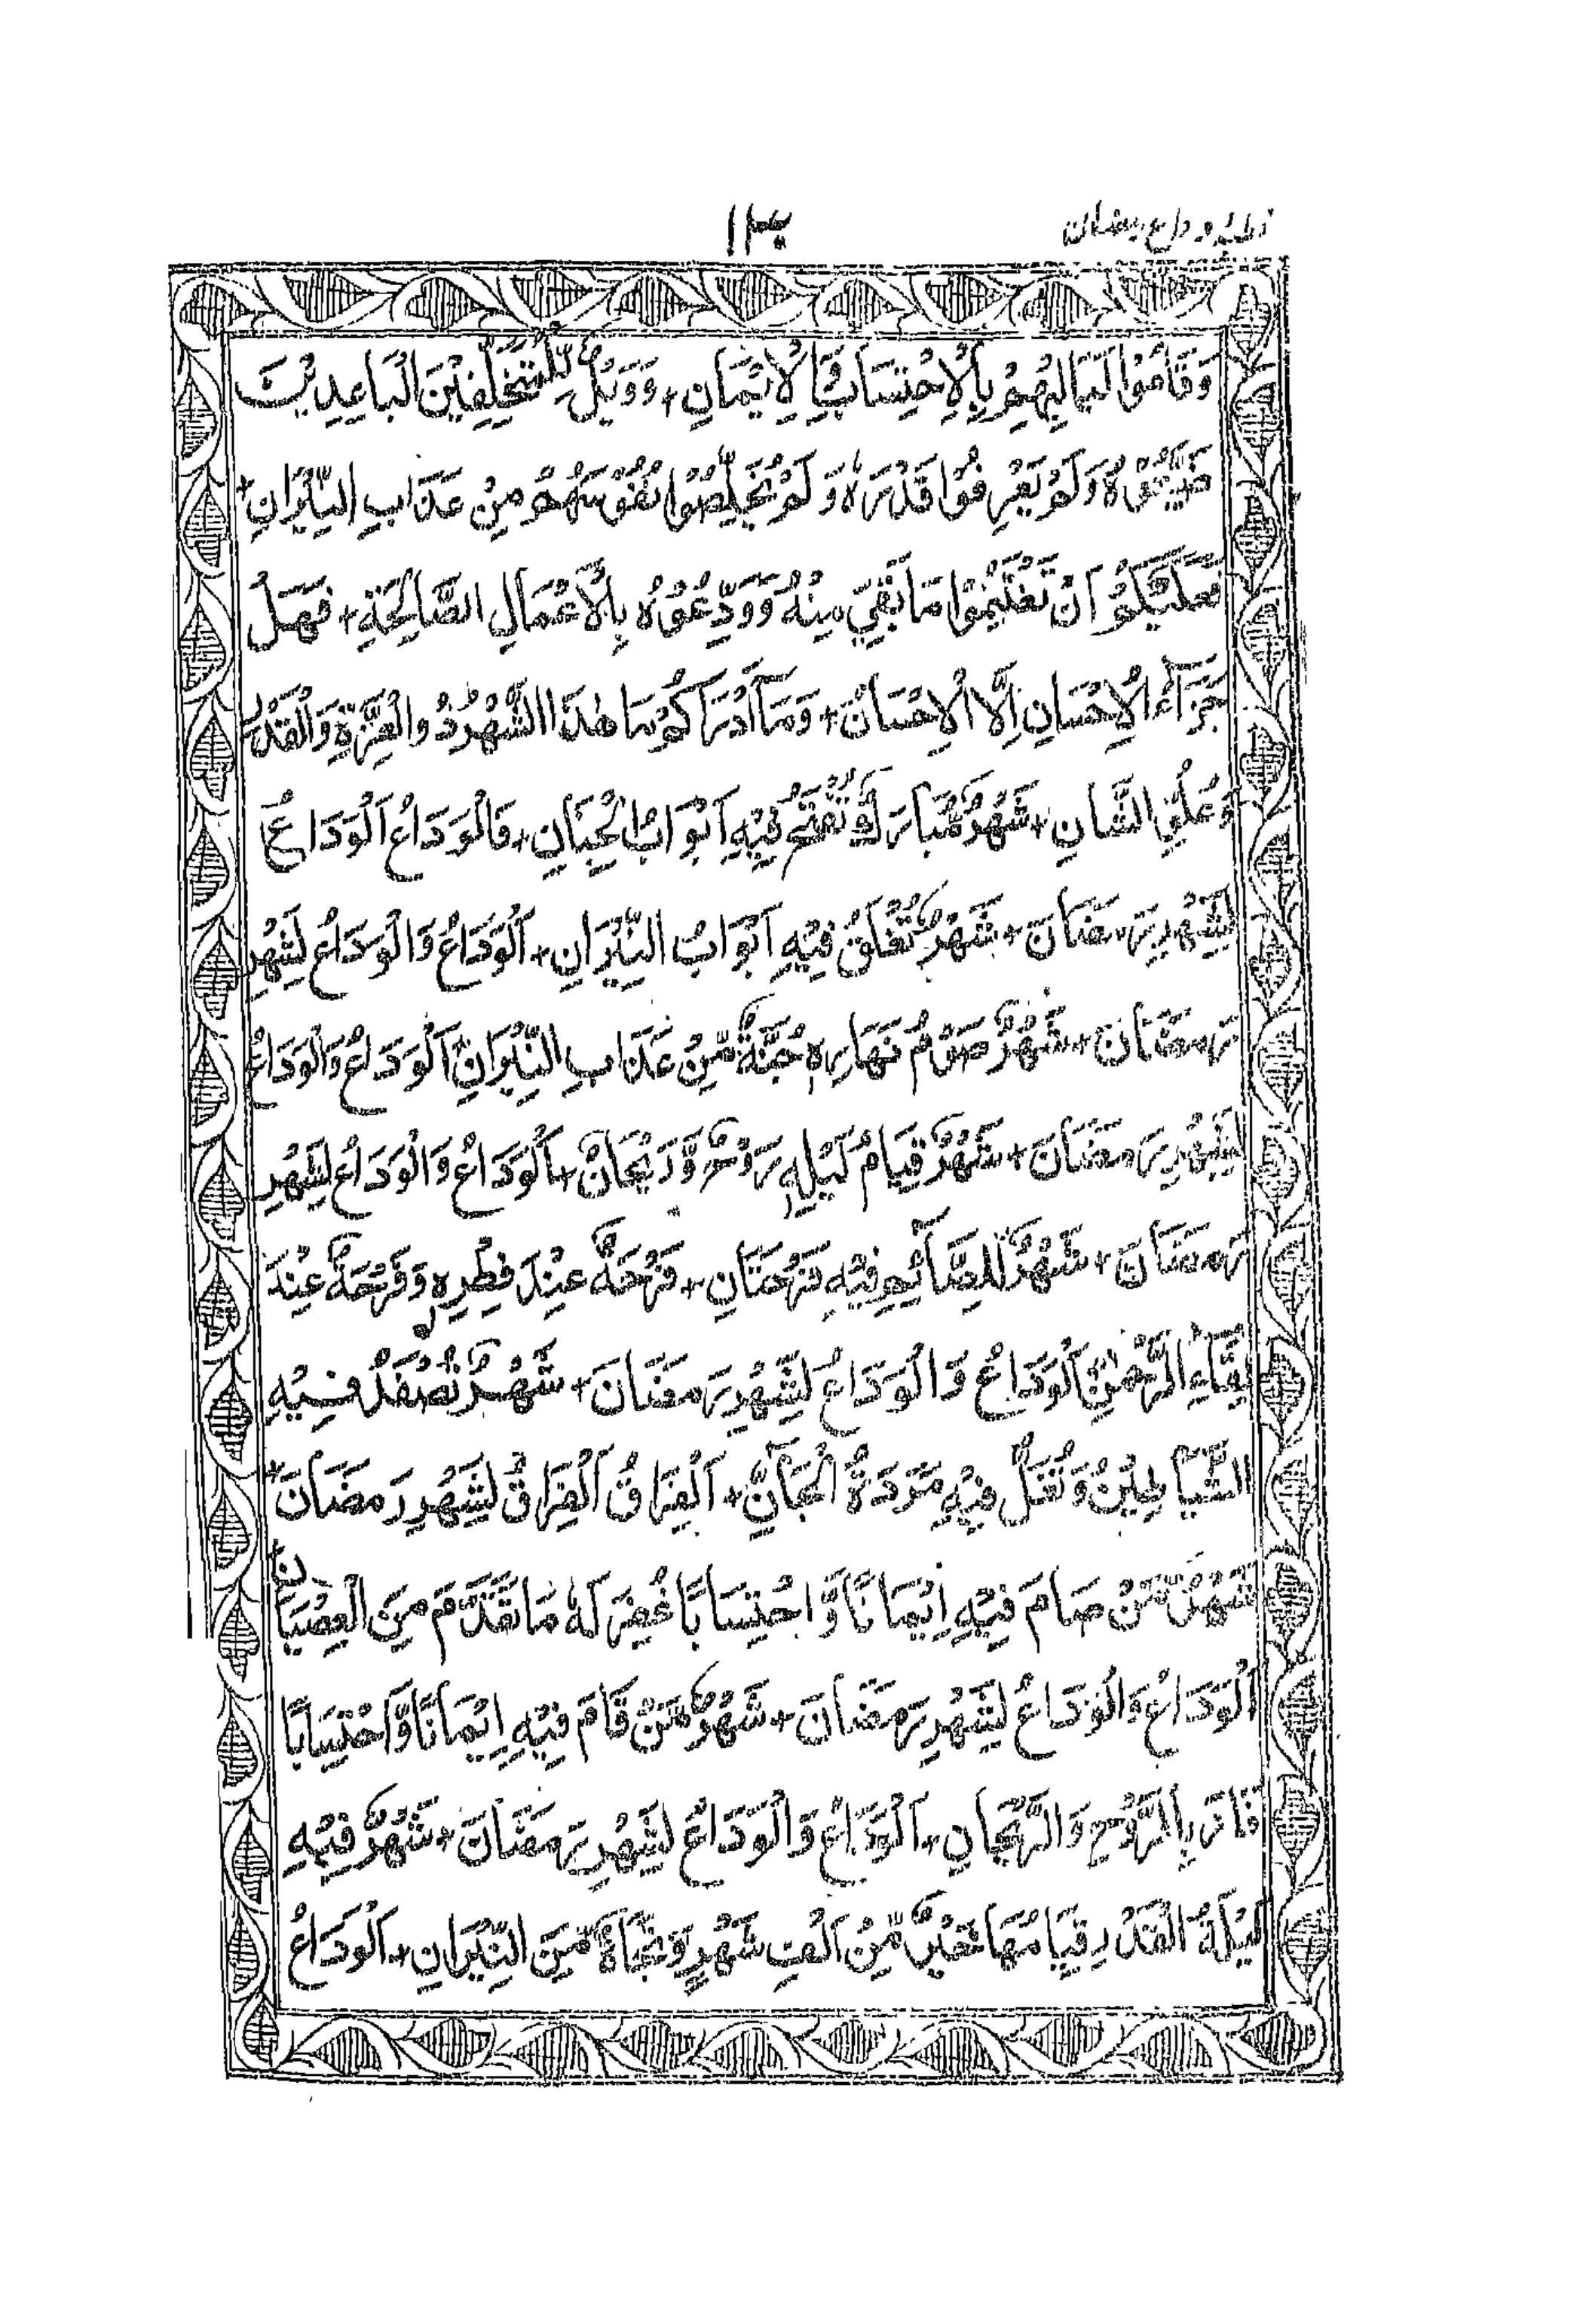 خطبہ وداع رمضان
۱۳۰
وَقَامُوْا لَيَالِيْهِمْ بِالْاِحْتِسَابِ وَالْاِيْمَانِ + وَوَيْلٌ لِّلْمُتَخَلِّفِيْنَ الْبَاعِدِيْنَ
ضَيَّعُوْهُ وَلَمْ يَعْرِفُوْا قَدْرَهٗ وَلَمْ يُخَلِّصُوْا نُفُوْسَهُمْ مِنْ عَذَابِ النِّيْرَانِ +
فَعَلَيْكُمْ اَنْ تَغْتَنِمُوْا مَا بَقِيَ مِنْهُ وَوَدِّعُوْهُ بِالْاَعْمَالِ الصَّالِحَةِ + فَهَلْ
جَزَآءُ الْاِحْسَانِ اِلَّا الْاِحْسَانُ + وَمَآ اَدْرَاكُمْ مَا هٰذَا الشَّهْرُ ذُو الْعِزَّةِ وَالْقَدْرِ
وَعُلُوِّ الشَّانِ + شَهْرٌ مُّبَارَكٌ تُفْتَحُ فِيْهِ اَبْوَابُ الْجِنَانِ + فَالْوَدَاعُ اَلْوَدَاعُ
لِشَهْرِ رَمَضَانَ + شَهْرٌ تُغْلَقُ فِيْهِ اَبْوَابُ النِّيْرَانِ + اَلْوَدَاعُ وَالْوَدَاعُ لِشَهْرِ
رَمَضَانَ + شَهْرٌ صَوْمُ نَهَارِهٖ جُنَّةٌ مِّنْ عَذَابِ النِّيْرَانِ اَلْوَدَاعُ وَالْوَدَاعُ
لِشَهْرِ رَمَضَانَ + شَهْرٌ قِيَامُ لَيْلِهٖ رَوْحٌ وَّرَيْحَانٌ + اَلْوَدَاعُ وَالْوَدَاعُ لِشَهْرِ
رَمَضَانَ + شَهْرٌ لِلصَّآئِمِ فِيْهِ فَرْحَتَانِ + فَرْحَةٌ عِنْدَ فِطْرِهٖ وَفَرْحَةٌ عِنْدَ
لِقَآءِ الرَّحْمٰنِ اَلْوَدَاعُ وَالْوَدَاعُ لِشَهْرِ رَمَضَانَ + شَهْرٌ تُصْفَدُ فِيْهِ
الشَّيَاطِيْنُ وَتُقْتَلُ فِيْهِ مَرَدَةُ الْجَآنِّ + اَلْفِرَاقُ اَلْفِرَاقُ لِشَهْرِ رَمَضَانَ +
شَهْرٌ مَّنْ صَامَ فِيْهِ اِيْمَانًا وَّاحْتِسَابًا غُفِرَ لَهٗ مَا تَقَدَّمَ مِنَ الْعِصْيَانِ +
اَلْوَدَاعُ وَالْوَدَاعُ لِشَهْرِ رَمَضَانَ + شَهْرٌ مَّنْ قَامَ فِيْهِ اِيْمَانًا وَّاحْتِسَابًا
فَازَ بِالرَّوْحِ وَالرَّيْحَانِ + اَلْوَدَاعُ وَالْوَدَاعُ لِشَهْرِ رَمَضَانَ + شَهْرٌ فِيْهِ
لَيْلَةُ الْقَدْرِ قِيَامُهَا خَيْرٌ مِّنْ اَلْفِ شَهْرٍ وَنَجَاةٌ مِّنَ النِّيْرَانِ + اَلْوَدَاعُ